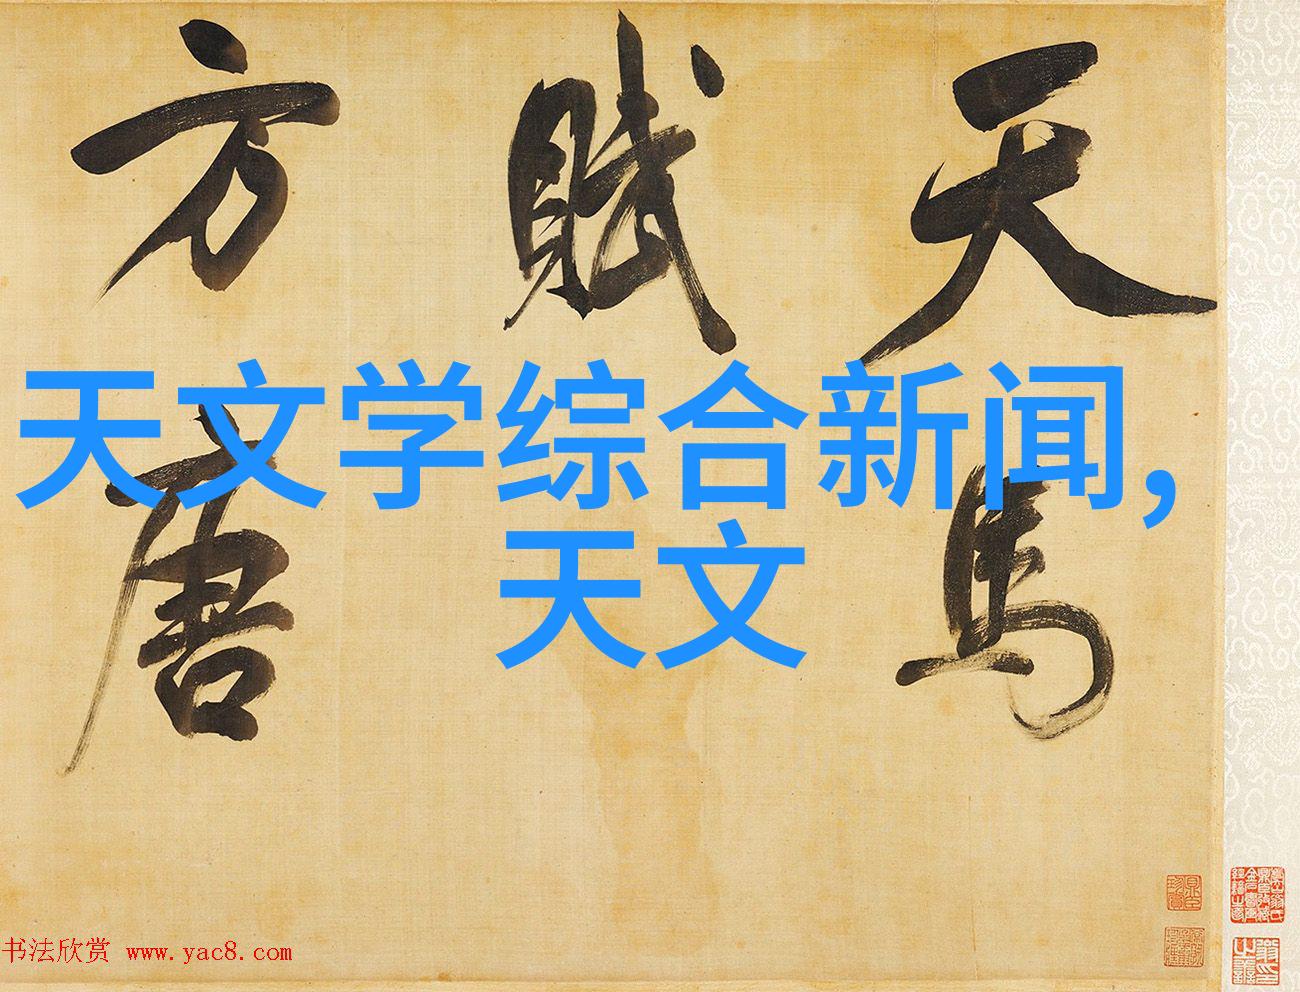 天馬
賦
方唐
天文学综合新闻,
天文
书法欣赏 www.yac8.com